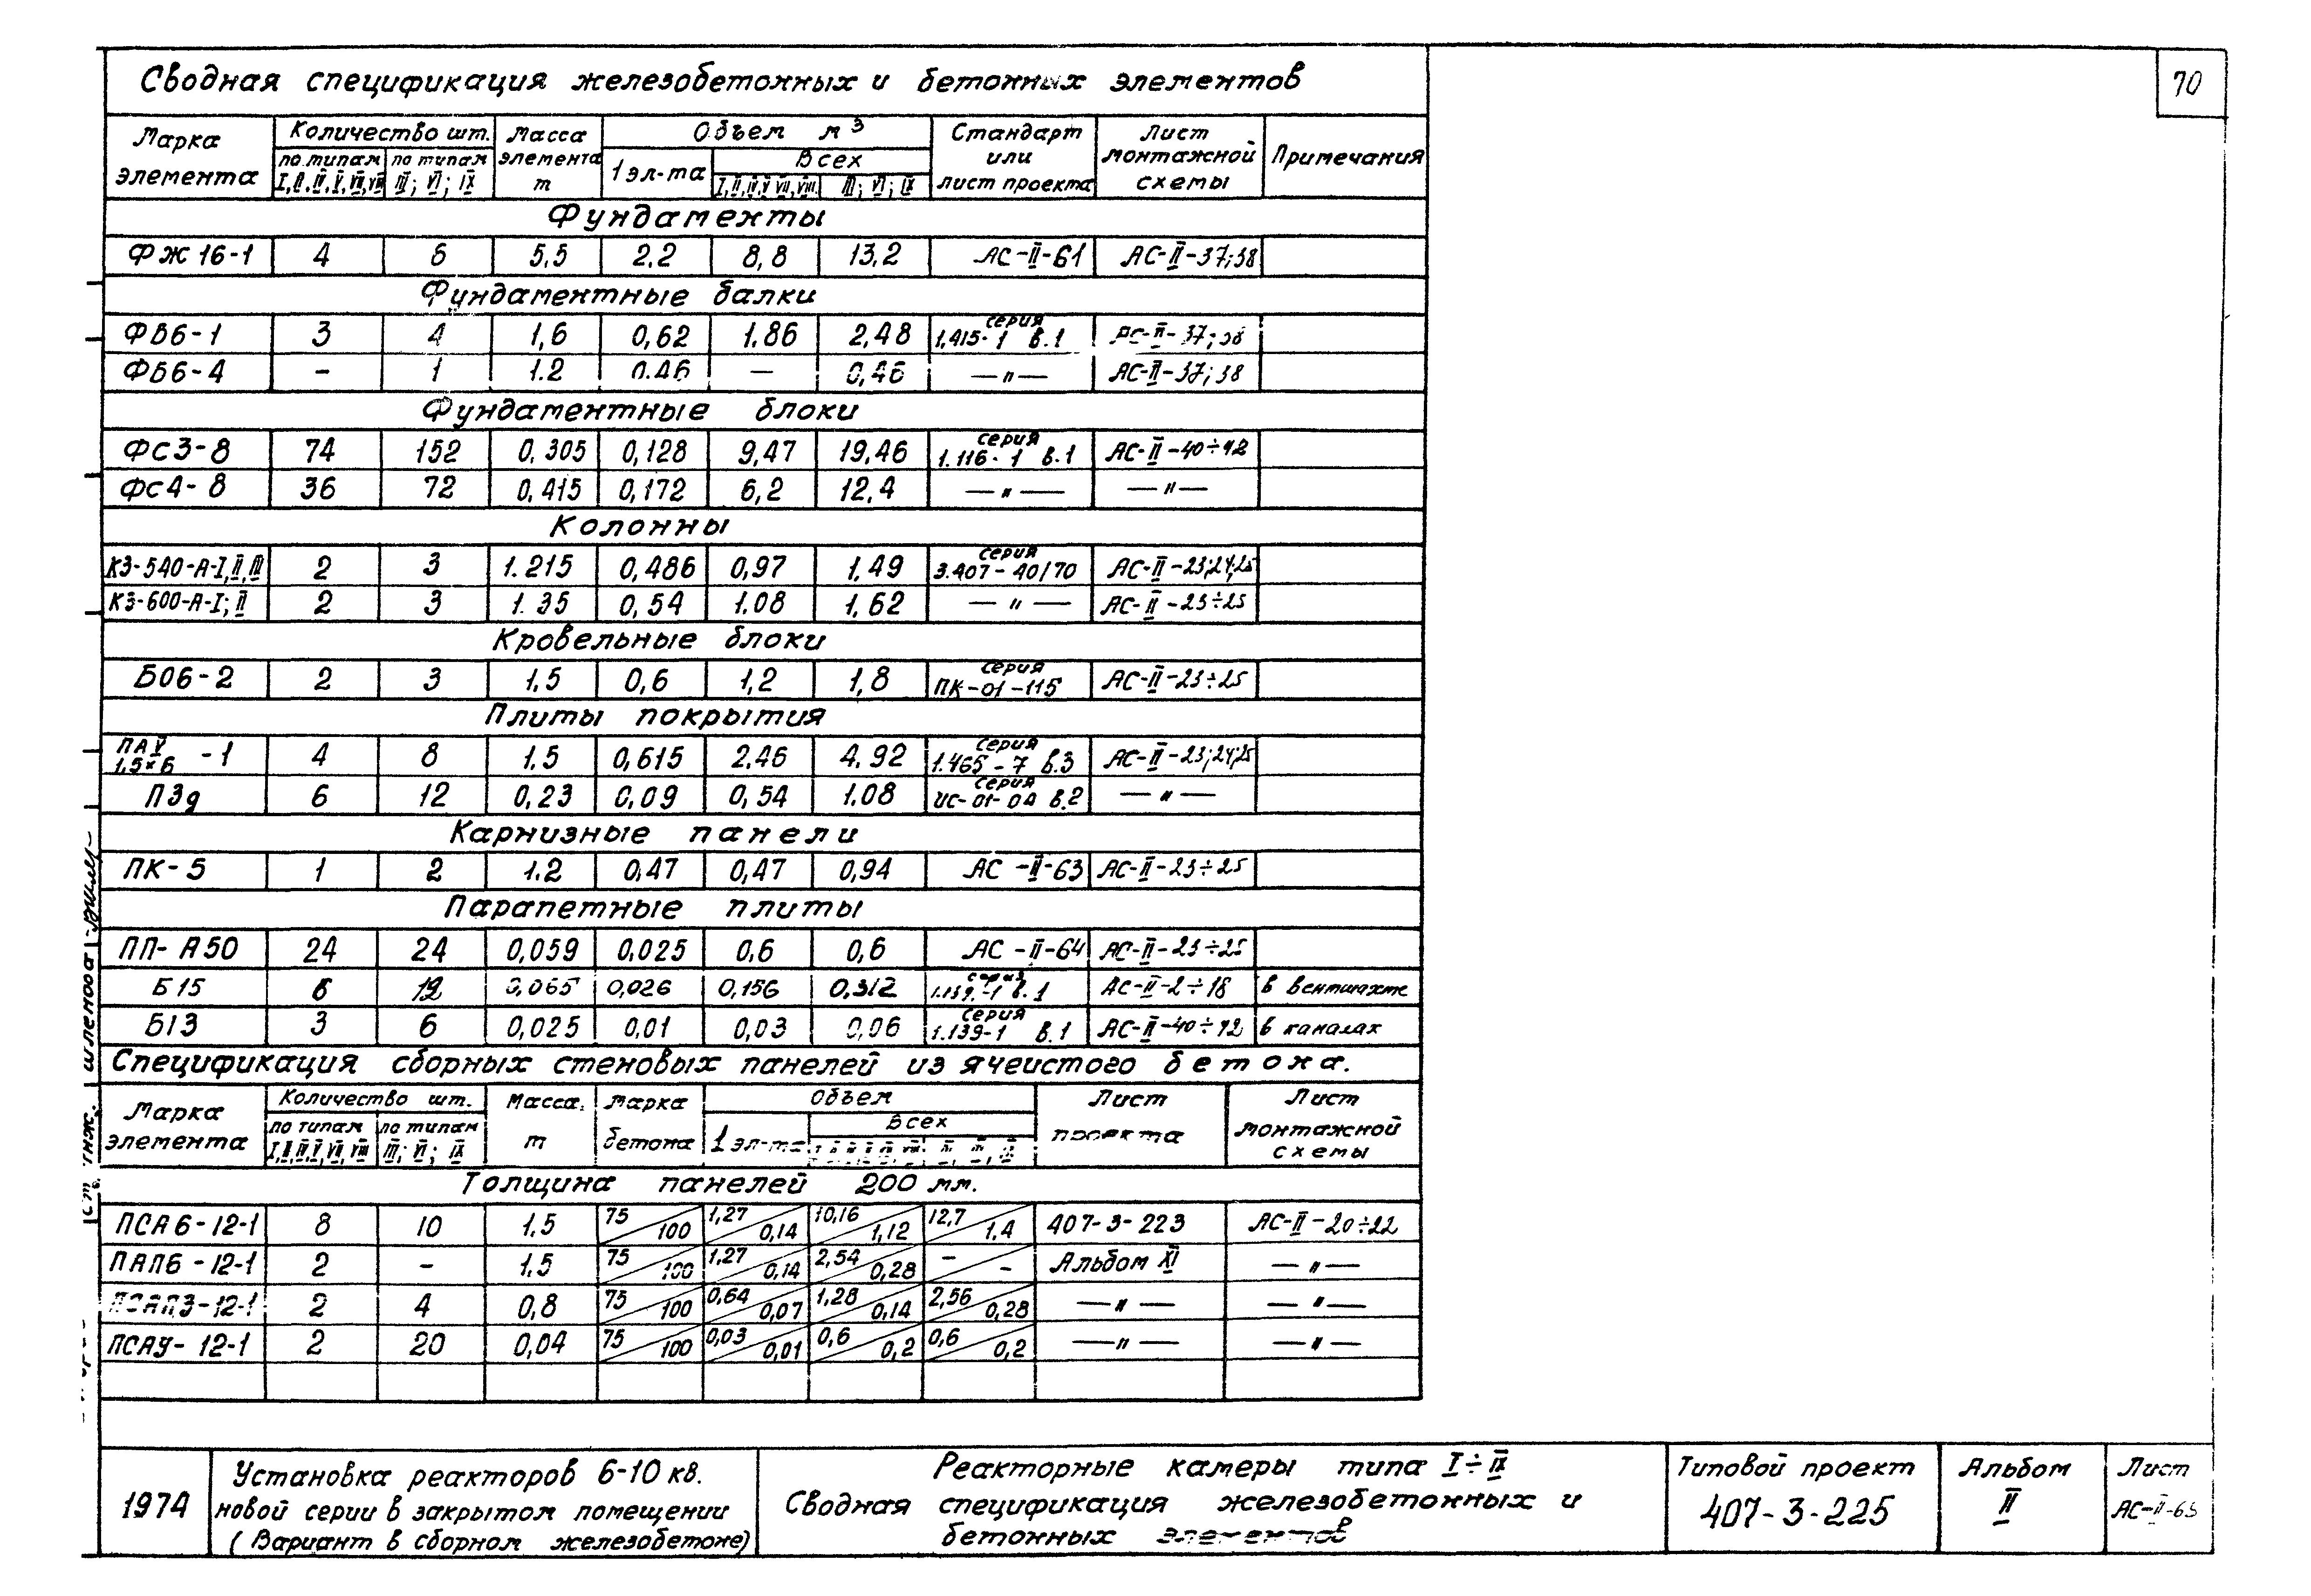 70
Сводная спецификация железобетонных и бетонных элементов
Марка элемента | Количество шт. | Масса элемента т | Объем м3 | Стандарт или лист проекта | Лист монтажной схемы | Примечания
по типам I, II, IV, V, VII, VIII | по типам III; VI; IX | 1 эл-та | Всех
I, II, IV, V VII, VIII | III; VI; IX
Фундаменты
ФЖ 16-1 | 4 | 6 | 5,5 | 2.2 | 8,8 | 13,2 | АС-II-61 | АС-II-37;38
Фундаментные балки
ФБ6-1 | 3 | 4 | 1,6 | 0,62 | 1.86 | 2,48 | серия 1.415-1 в.1 | АС-II-37;38
ФБ6-4 | - | 1 | 1.2 | 0.46 | — | 0,46 | —"— | АС-II-37;38
Фундаментные блоки
ФС3-8 | 74 | 152 | 0,305 | 0,128 | 9,47 | 19,46 | серия 1.116-1 в.1 | АС-II-40÷42
ФС4-8 | 36 | 72 | 0,415 | 0,172 | 6,2 | 12,4 | —"— | —"—
Колонны
КЭ-540-А-I, II, III | 2 | 3 | 1.215 | 0,486 | 0,97 | 1,49 | серия 3.407-40/70 | АС-II-23;24;25
КЭ-600-А-I; II | 2 | 3 | 1.35 | 0,54 | 1.08 | 1,62 | —"— | АС-II-23÷25
Кровельные блоки
Б06-2 | 2 | 3 | 1,5 | 0,6 | 1,2 | 1,8 | серия ПК-01-115 | АС-II-23÷25
Плиты покрытия
ПАV 1,5×6 -1 | 4 | 8 | 1.5 | 0,615 | 2.46 | 4.92 | серия 1.465-7 в.3 | АС-II-23;24;25
ПЗд | 6 | 12 | 0,23 | 0,09 | 0,54 | 1.08 | серия ИС-01-04 в.2 | —"—
Карнизные панели
ПК-5 | 1 | 2 | 1.2 | 0,47 | 0,47 | 0,94 | АС-II-63 | АС-II-23÷25
Парапетные плиты
ПП-А50 | 24 | 24 | 0,059 | 0,025 | 0,6 | 0,6 | АС-II-64 | АС-II-23÷25
Б15 | 6 | 12 | 0,065 | 0,026 | 0,156 | 0.312 | серия 1.139.-1 в.1 | АС-II-2÷18 | в вентшахте
Б13 | 3 | 6 | 0,025 | 0,01 | 0,03 | 0,06 | серия 1.139-1 в.1 | АС-II-40÷42 | в каналах
Спецификация сборных стеновых панелей из ячеистого бетона.
Марка элемента | Количество шт. | Масса, т | Марка бетона | Объем | Лист проекта | Лист монтажной схемы
по типам I, II, IV, V, VII, VIII | по типам III; VI; IX | 1 эл-та | Всех
Толщина панелей 200 мм.
ПСА6-12-1 | 8 | 10 | 1.5 | 75/100 | 1,27/0,14 | 10,16/1,12 | 12,7/1.4 | 407-3-223 | АС-II-20÷22
ПАП6-12-1 | 2 | - | 1.5 | 75/100 | 1,27/0,14 | 2,54/0,28 | -/- | Альбом XI | —"—
ПСАП3-12-1 | 2 | 4 | 0,8 | 75/100 | 0,64/0,07 | 1,28/0,14 | 2,56/0,28 | —"— | —"—
ПСАУ-12-1 | 2 | 20 | 0,04 | 75/100 | 0,03/0,01 | 0,6/0,2 | 0,6/0,2 | —"— | —"—
ст. инж.
1974
Установка реакторов 6-10 кв.
новой серии в закрытом помещении
(Вариант в сборном железобетоне)
Реакторные камеры типа I÷IX
Сводная спецификация железобетонных и
бетонных элементов
Типовой проект
407-3-225
Альбом
II
Лист
АС-II-65